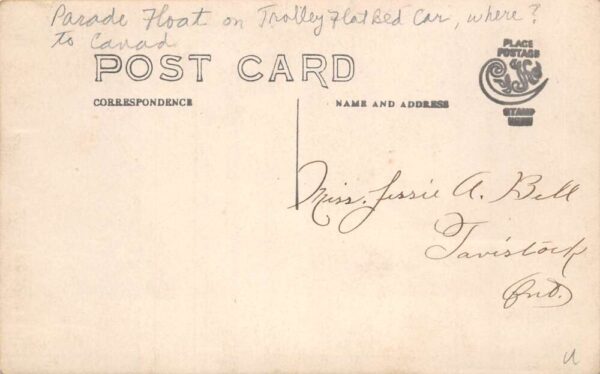 Parade Float on Trolley Flat Bed Car, where?
to Canad
POST CARD
CORRESPONDENCE
NAME AND ADDRESS
PLACE
POSTAGE
STAMP
HERE
Miss. Jessie A. Bell
Tavistock
Ont.
u